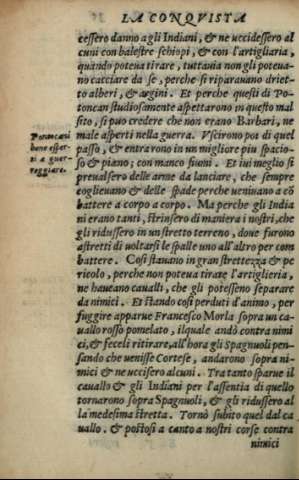 LA CONQVISTA
cessero danno agli Indiani, & ne uccidessero al
cuni con balestre schiopi, & con l'artigliaria,
quando poteua tirare, tuttauia non gli poteua-
no cacciare da se, perche si riparauano drie-
to alberi, & argini. Et perche questi di Po-
toncan studiosamente aspettarono in questo mal
sito, si può credere che non erano Barbari, ne
male asperti nella guerra. Vscirono poi di quel
passo, & entrarono in un migliore piu spacio-
so & piano; con manco fiumi. Et iui meglio si
preualsero delle arme da lanciare, che sempre
coglieuano & delle spade perche ueniuano a cõ
battere a corpo a corpo. Ma perche gli India
ni erano tanti, strinsero di maniera i nostri, che
gli ridussero in un stretto terreno, doue furono
astretti di uoltarsi le spalle uno all'altro per com
battere. Cosi stauano in gran strettezza & pe
ricolo, perche non poteua tirare l'artiglieria,
ne haueano caualli, che gli potesseno separare
da nimici. Et stando cosi perduti d'animo, per
fuggire apparue Francesco Morla sopra un ca-
uallo rosso pomelato, il quale andò contra nimi
ci, & feceli ritirare, all'hora gli Spagnuoli pen-
sando che uenisse Cortese, andarono sopra ni-
mici & ne uccisero alcuni. Tra tanto sparue il
cauallo & gli Indiani per l'assentia di quello
tornarono sopra Spagnuoli, & gli ridussero al
la medesima stretta. Tornò subito quel dal ca
uallo. & postosi a canto a nostri corse contra
nimici
Potoncani
huomo esper-
ti a guer-
reggiare.